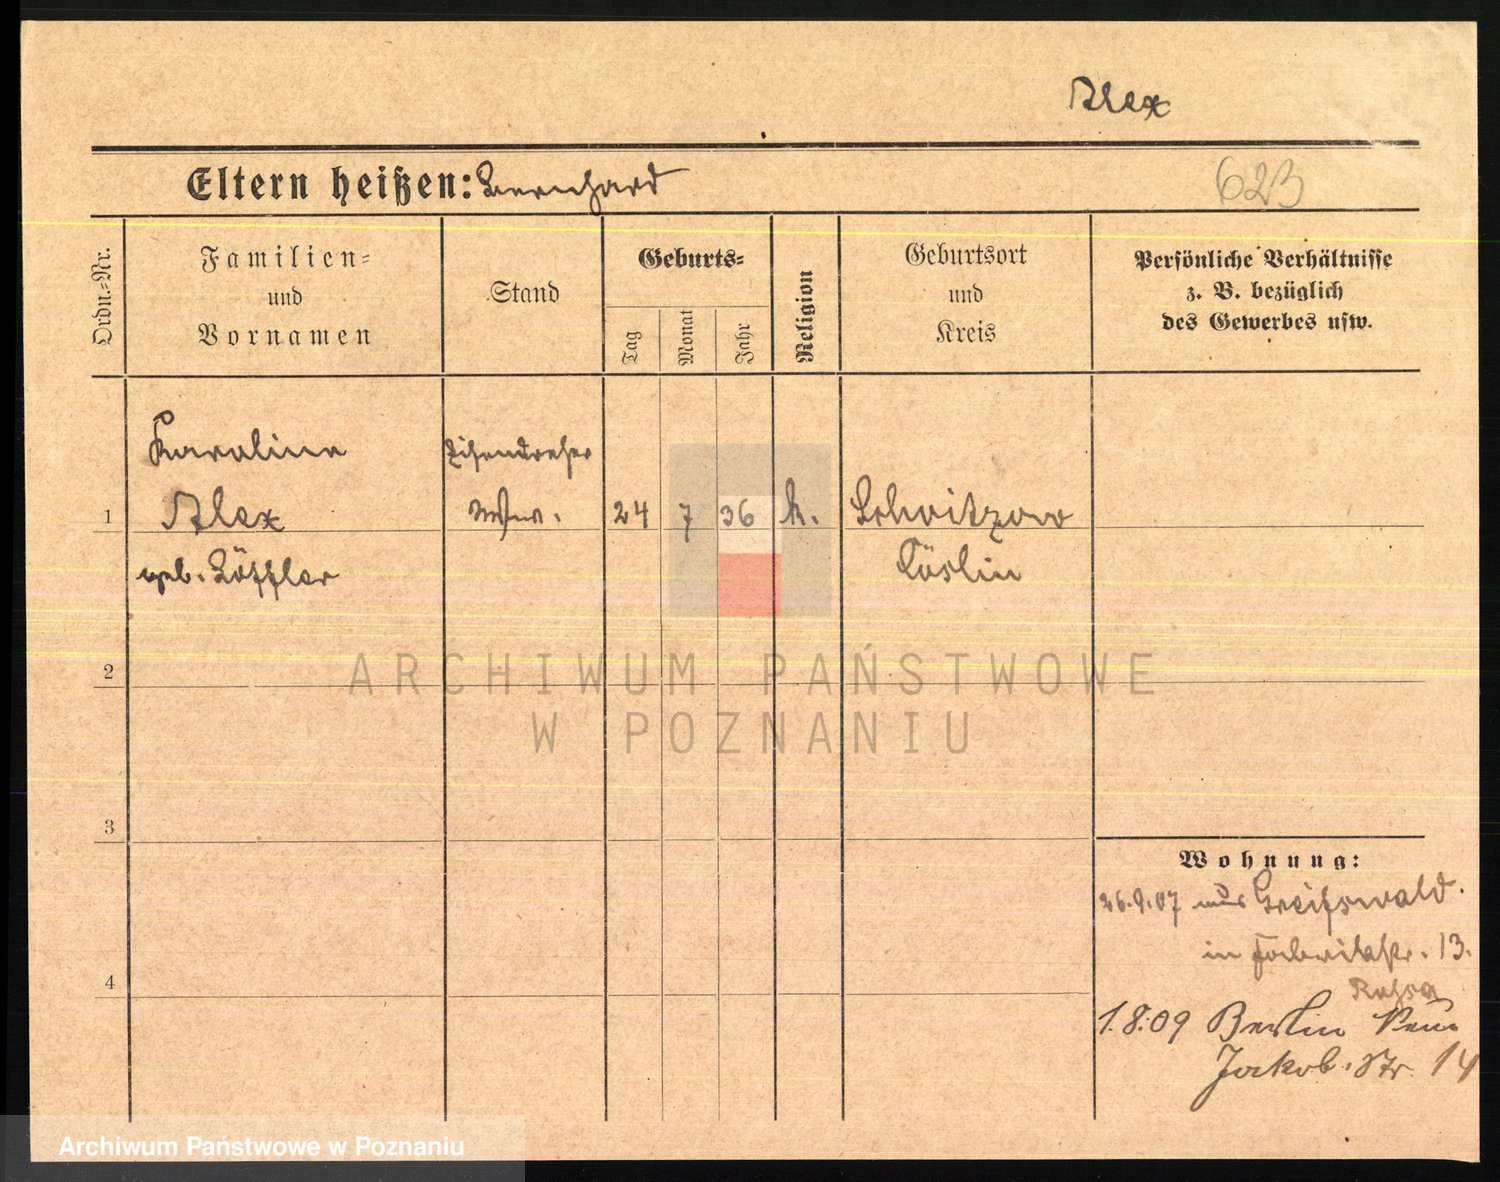 Alex
Eltern heißen: Bernhard
623
Ordn.-Nr.
Familien-
und
Vornamen
Stand
Geburts-
Tag
Monat
Jahr
Religion
Geburtsort
und
Kreis
Persönliche Verhältnisse
z. B. bezüglich
des Gewerbes usw.
Karoline
Eisendreher
1
Alex
Wwe.
24
7
36
k.
geb. Löffler
Cöslin
ARCHIWUM PAŃSTWOWE
W POZNANIU
2
3
Wohnung:
26.9.07 aus Greifswald.
in Fabrikstr. 13.
4
1.8.09 Berlin Neue
Jakob. Str. 14
Archiwum Państwowe w Poznaniu